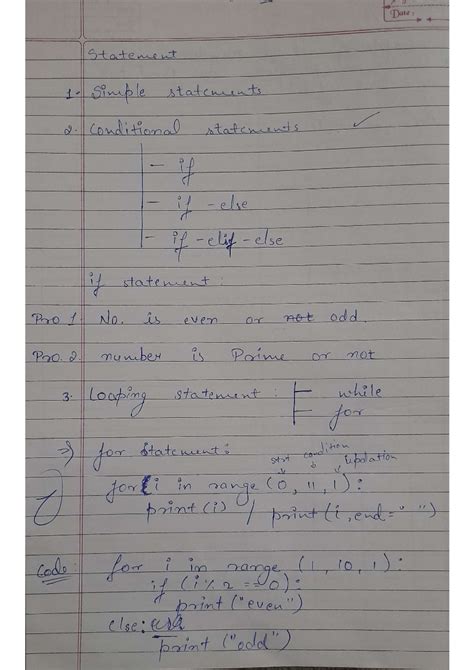 Date:
Statement
1. Simple statements
2. Conditional statements
- if
- if - else
- if - elif - else
if statement :
Pro. 1. No. is even or not odd.
Pro. 2. number is Prime or not
3. Looping statement : while
for
=> for statement :
start condition Updation
for i in range (0, 11, 1):
print (i) / print (i, end = " ")
Code: for i in range (1, 10, 1):
if (i % 2 == 0):
print ("even")
else:
print ("odd")